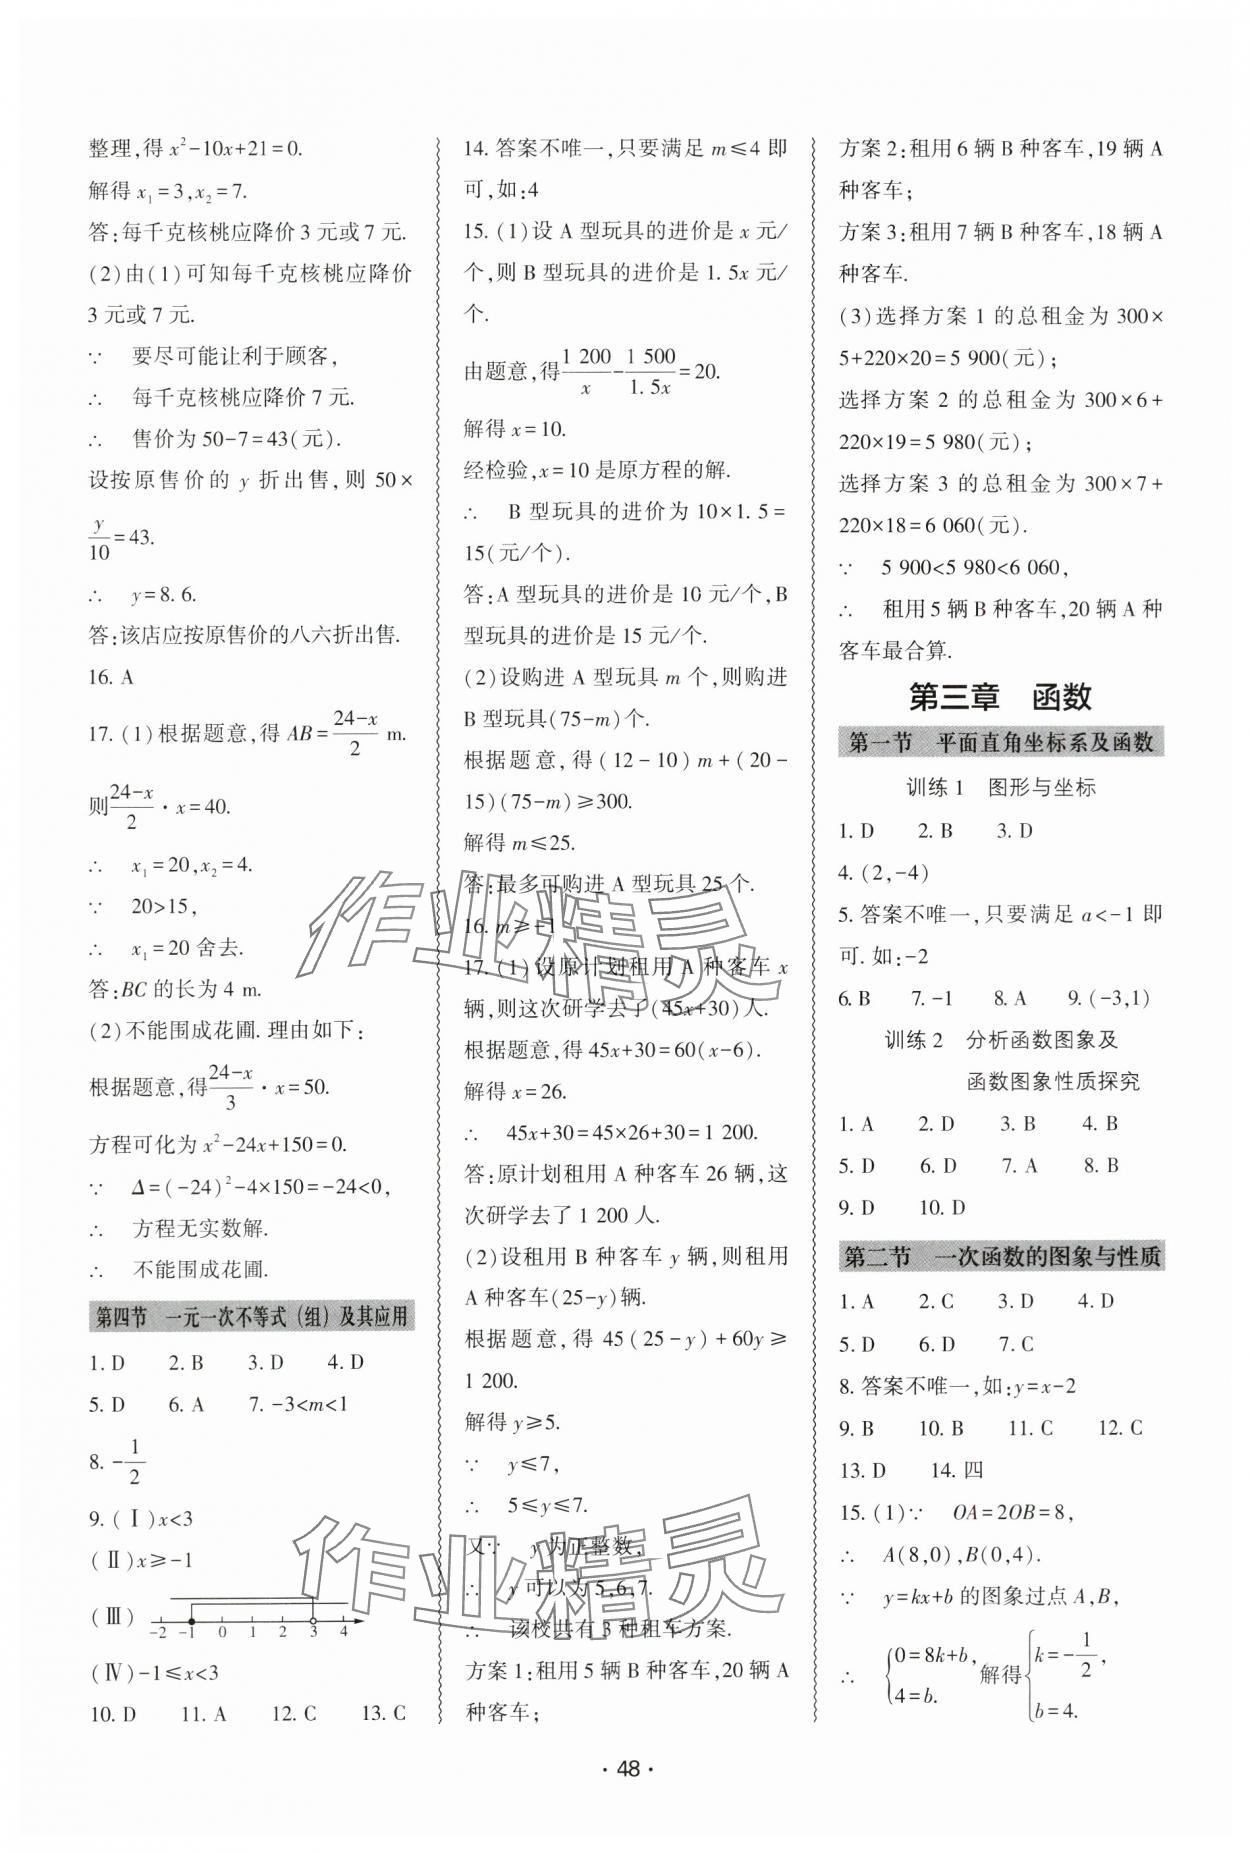 整理,得 x²-10x+21=0.
解得 x₁=3,x₂=7.
答:每千克核桃应降价 3 元或 7 元.
(2)由(1)可知每千克核桃应降价
3 元或 7 元.
∵ 要尽可能让利于顾客,
∴ 每千克核桃应降价 7 元.
∴ 售价为 50-7=43(元).
设按原售价的 y 折出售,则 50×
y/10=43.
∴ y=8.6.
答:该店应按原售价的八六折出售.
16. A
17. (1)根据题意,得 AB=(24-x)/2 m.
则(24-x)/2·x=40.
∴ x₁=20,x₂=4.
∵ 20>15,
∴ x₁=20 舍去.
答:BC 的长为 4 m.
(2)不能围成花圃.理由如下:
根据题意,得(24-x)/3·x=50.
方程可化为 x²-24x+150=0.
∵ Δ=(-24)²-4×150=-24<0,
∴ 方程无实数解.
∴ 不能围成花圃.
第四节 一元一次不等式(组)及其应用
1. D 2. B 3. D 4. D
5. D 6. A 7. -3<m<1
8. -1/2
9. (Ⅰ)x<3
(Ⅱ)x≥-1
(Ⅲ) -2 -1 0 1 2 3 4
(Ⅳ)-1≤x<3
10. D 11. A 12. C 13. C
14. 答案不唯一,只要满足 m≤4 即
可,如:4
15. (1)设 A 型玩具的进价是 x 元/
个,则 B 型玩具的进价是 1.5x 元/
个.
由题意,得1 200/x-1 500/1.5x=20.
解得 x=10.
经检验,x=10 是原方程的解.
∴ B 型玩具的进价为 10×1.5=
15(元/个).
答:A 型玩具的进价是 10 元/个,B
型玩具的进价是 15 元/个.
(2)设购进 A 型玩具 m 个,则购进
B 型玩具(75-m)个.
根据题意,得(12-10)m+(20-
15)(75-m)≥300.
解得 m≤25.
答:最多可购进 A 型玩具 25 个.
16. m≥-1
17. (1)设原计划租用 A 种客车 x
辆,则这次研学去了(45x+30)人.
根据题意,得 45x+30=60(x-6).
解得 x=26.
∴ 45x+30=45×26+30=1 200.
答:原计划租用 A 种客车 26 辆,这
次研学去了 1 200 人.
(2)设租用 B 种客车 y 辆,则租用
A 种客车(25-y)辆.
根据题意,得 45(25-y)+60y≥
1 200.
解得 y≥5.
∵ y≤7,
∴ 5≤y≤7.
又∵ y 为正整数,
∴ y 可以为 5,6,7.
∴ 该校共有 3 种租车方案.
方案 1:租用 5 辆 B 种客车,20 辆 A
种客车;
方案 2:租用 6 辆 B 种客车,19 辆 A
种客车;
方案 3:租用 7 辆 B 种客车,18 辆 A
种客车.
(3)选择方案 1 的总租金为 300×
5+220×20=5 900(元);
选择方案 2 的总租金为 300×6+
220×19=5 980(元);
选择方案 3 的总租金为 300×7+
220×18=6 060(元).
∵ 5 900<5 980<6 060,
∴ 租用 5 辆 B 种客车,20 辆 A 种
客车最合算.
第三章 函数
第一节 平面直角坐标系及函数
训练 1 图形与坐标
1. D 2. B 3. D
4. (2,-4)
5. 答案不唯一,只要满足 a<-1 即
可.如:-2
6. B 7. -1 8. A 9. (-3,1)
训练 2 分析函数图象及
函数图象性质探究
1. A 2. D 3. B 4. B
5. D 6. D 7. A 8. B
9. D 10. D
第二节 一次函数的图象与性质
1. A 2. C 3. D 4. D
5. D 6. D 7. C
8. 答案不唯一,如:y=x-2
9. B 10. B 11. C 12. C
13. D 14. 四
15. (1)∵ OA=2OB=8,
∴ A(8,0),B(0,4).
∵ y=kx+b 的图象过点 A,B,
∴ {0=8k+b, 4=b. 解得{k=-1/2, b=4.
·48·
作业精灵
作业精灵